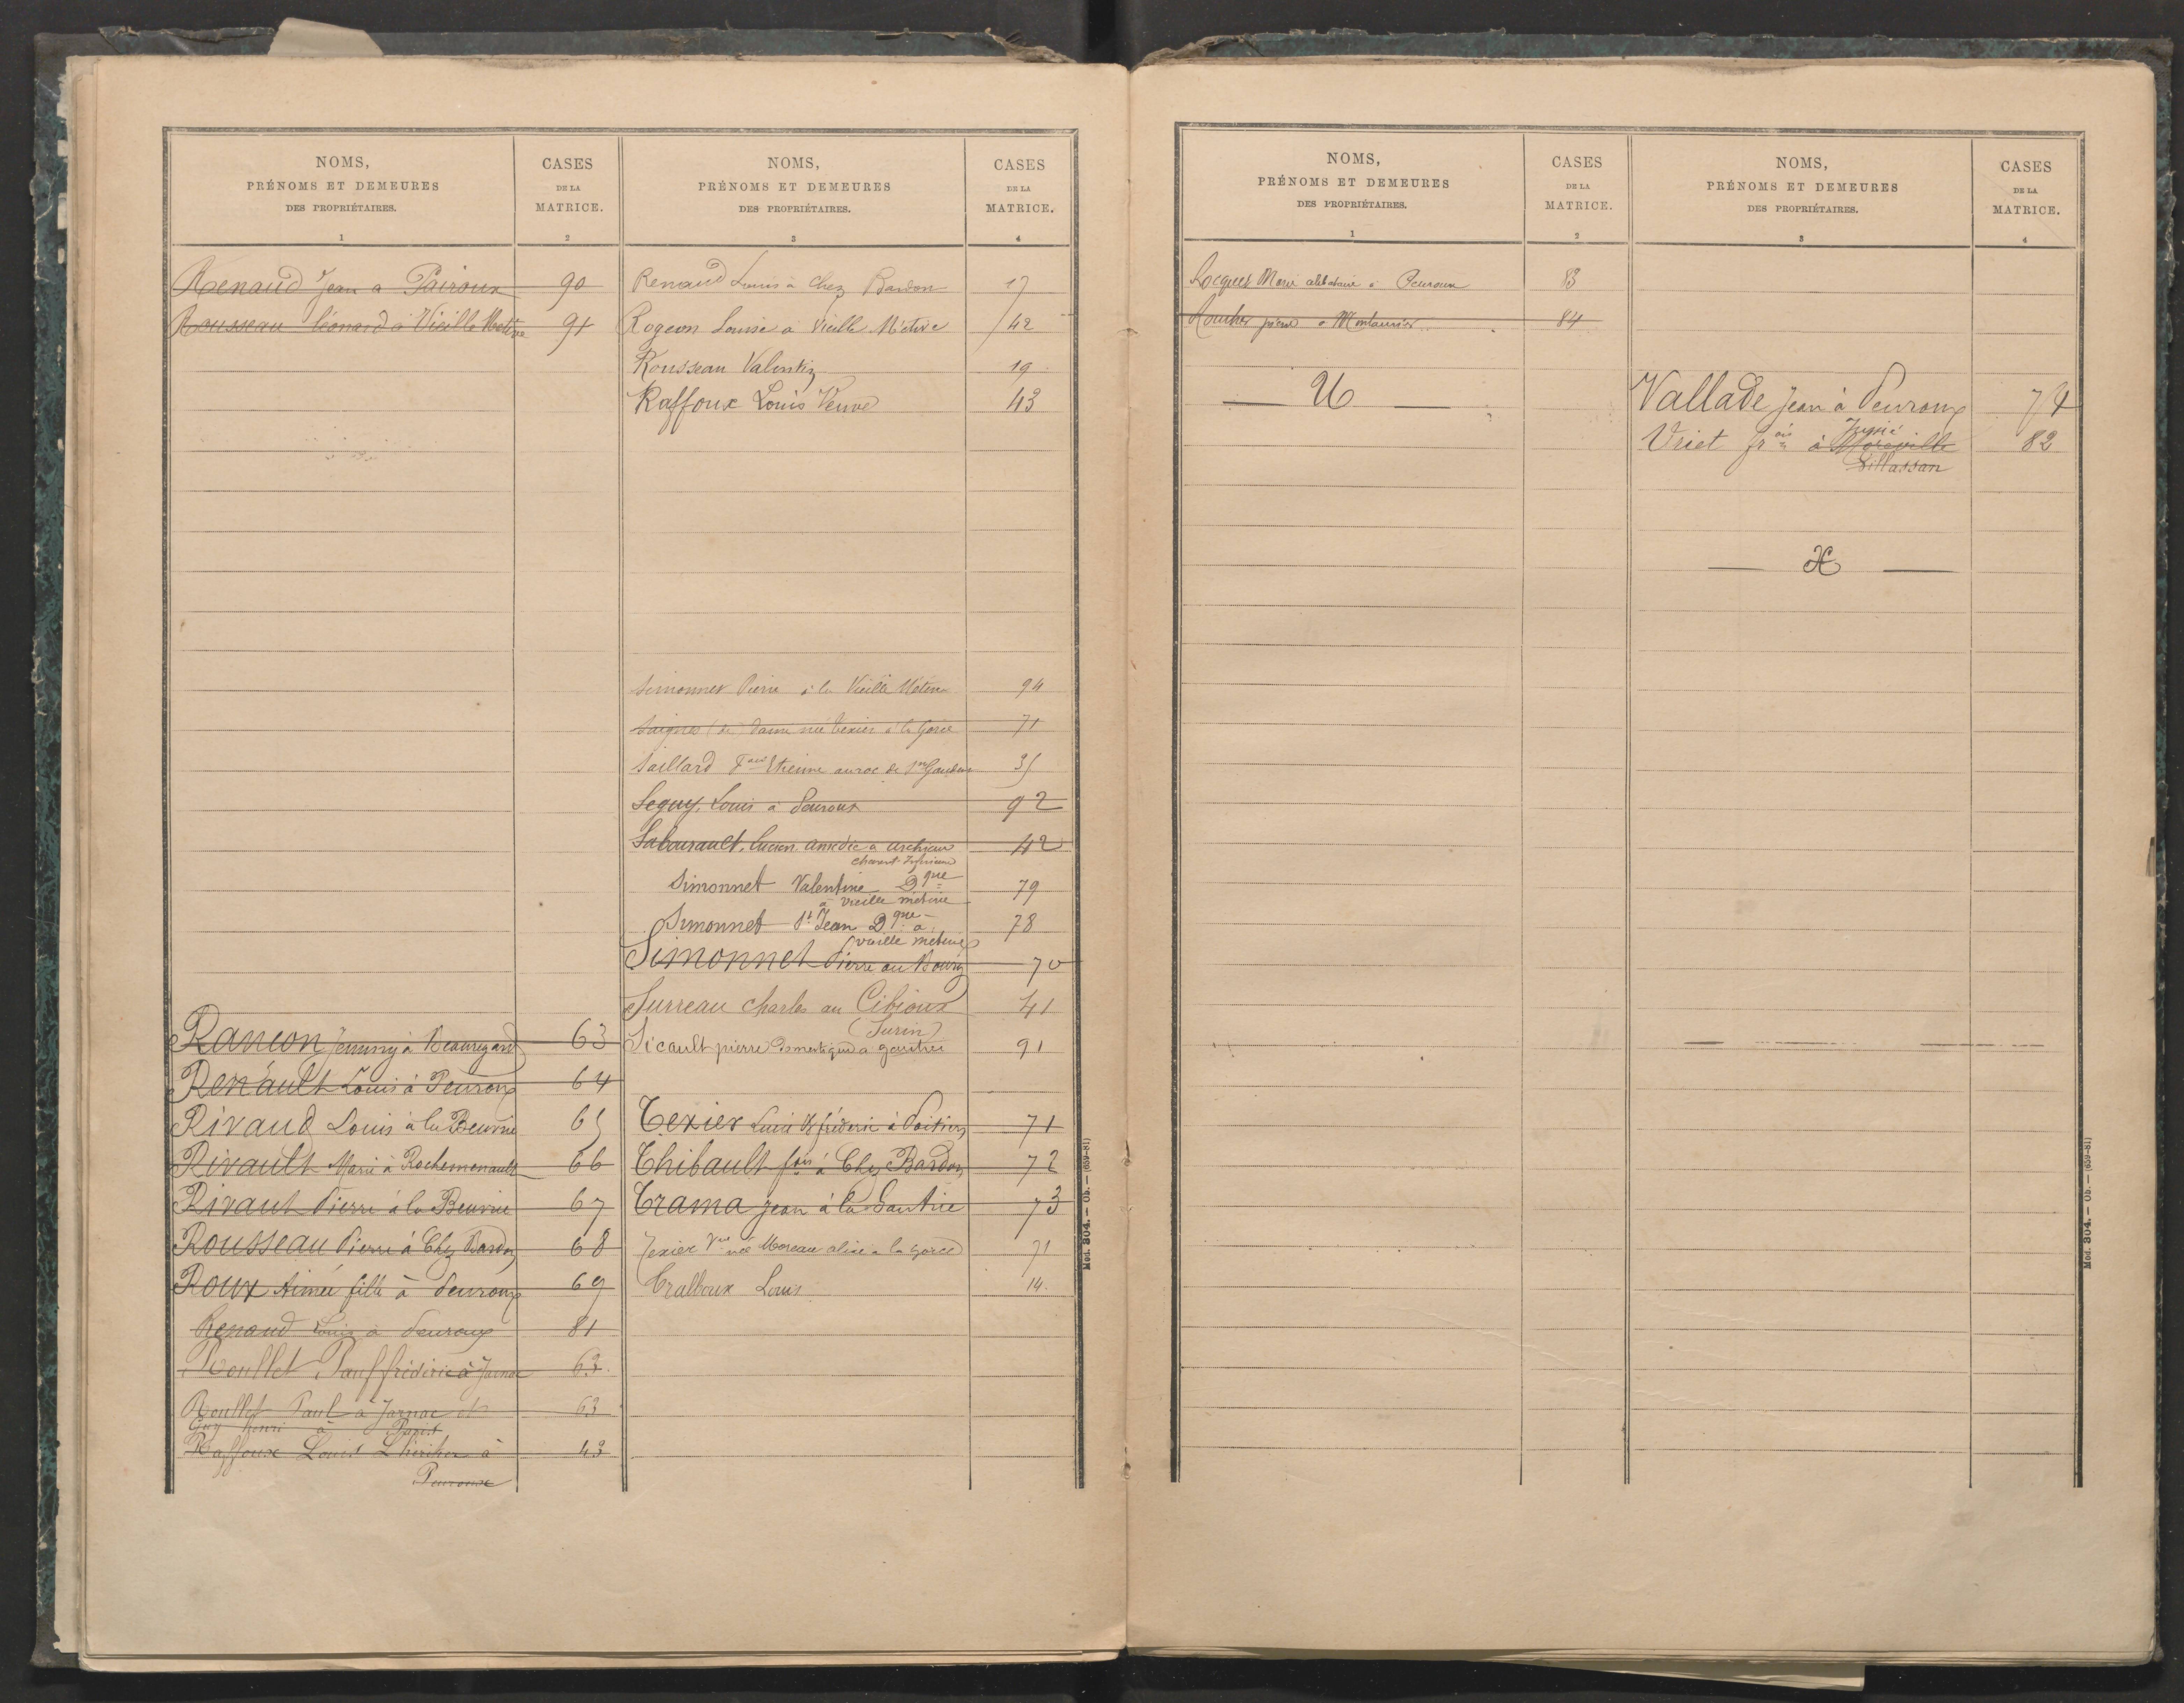 NOMS,
PRÉNOMS ET DEMEURES
DES PROPRIÉTAIRES.
1
CASES
DE LA
MATRICE.
2
Renaud Jean a Pairoux 90
Rousseau léonard à Vieille Metive 91
Rancon Jemmy à Beauregard 63
Renault Louis à Peuroux 64
Rivaud Louis à la Beuvrie 65
Rivault Marie à Rochemenault 66
Rivaut Pierre à la Beuvrie 67
Rousseau Pierre à Chez Bardon 68
Roux Aimée fille à Peuroux 69
Renaud Louis à Peuroux 81
Roullet Paul frédéric à Jarnac 63
Roullet Paul à Jarnac et 63
Guy henri à Paris
Raffoux Louis L'héritier à 43
Peuroux
NOMS,
PRÉNOMS ET DEMEURES
DES PROPRIÉTAIRES.
3
CASES
DE LA
MATRICE.
4
Renaud Louis à Chez Bardon 17
Rogeon Louise à Vieille Métive 42
Rousseau Valentin 19
Raffoux Louis Veuve 43
Simonnet Pierre à la Vieille Métive 94
Saignes (de) Dame née Texier à la Gorce 71
Saillard Etienne au roc de St Gaudent 35
Seguy, Louis à Peuroux 92
Sabourault, Lucien Amédée a Archiac 42
Charent Inférieure
Simonnet Valentine Dque 79
à vieille métive
Simonnet St Jean Dque a 78
vieille métive
Simonnet Pierre au Bourg 70
Surreau Charles au Cibioux 41
(Surin)
Sicault pierre Domestique a gautrie 91
Texier Louis frédéric à Poitiers 71
Thibault fois à Chez Bardon 72
Trama Jean à la Gautrie 73
Texier Vve née Moreau alice a la gorce 71
Tralboux Louis 14.
Mod. 304. — Ob. — (659-81)
NOMS,
PRÉNOMS ET DEMEURES
DES PROPRIÉTAIRES.
1
CASES
DE LA
MATRICE.
2
Marie célibataire à Peuroux 83
pierre à 84
U
NOMS,
PRÉNOMS ET DEMEURES
DES PROPRIÉTAIRES.
3
CASES
DE LA
MATRICE.
4
Vallade Jean à Peuroux 74
Jussié
Vriet frois à 82
Lillassan
X
Mod. 304. — Ob. — (659-81)